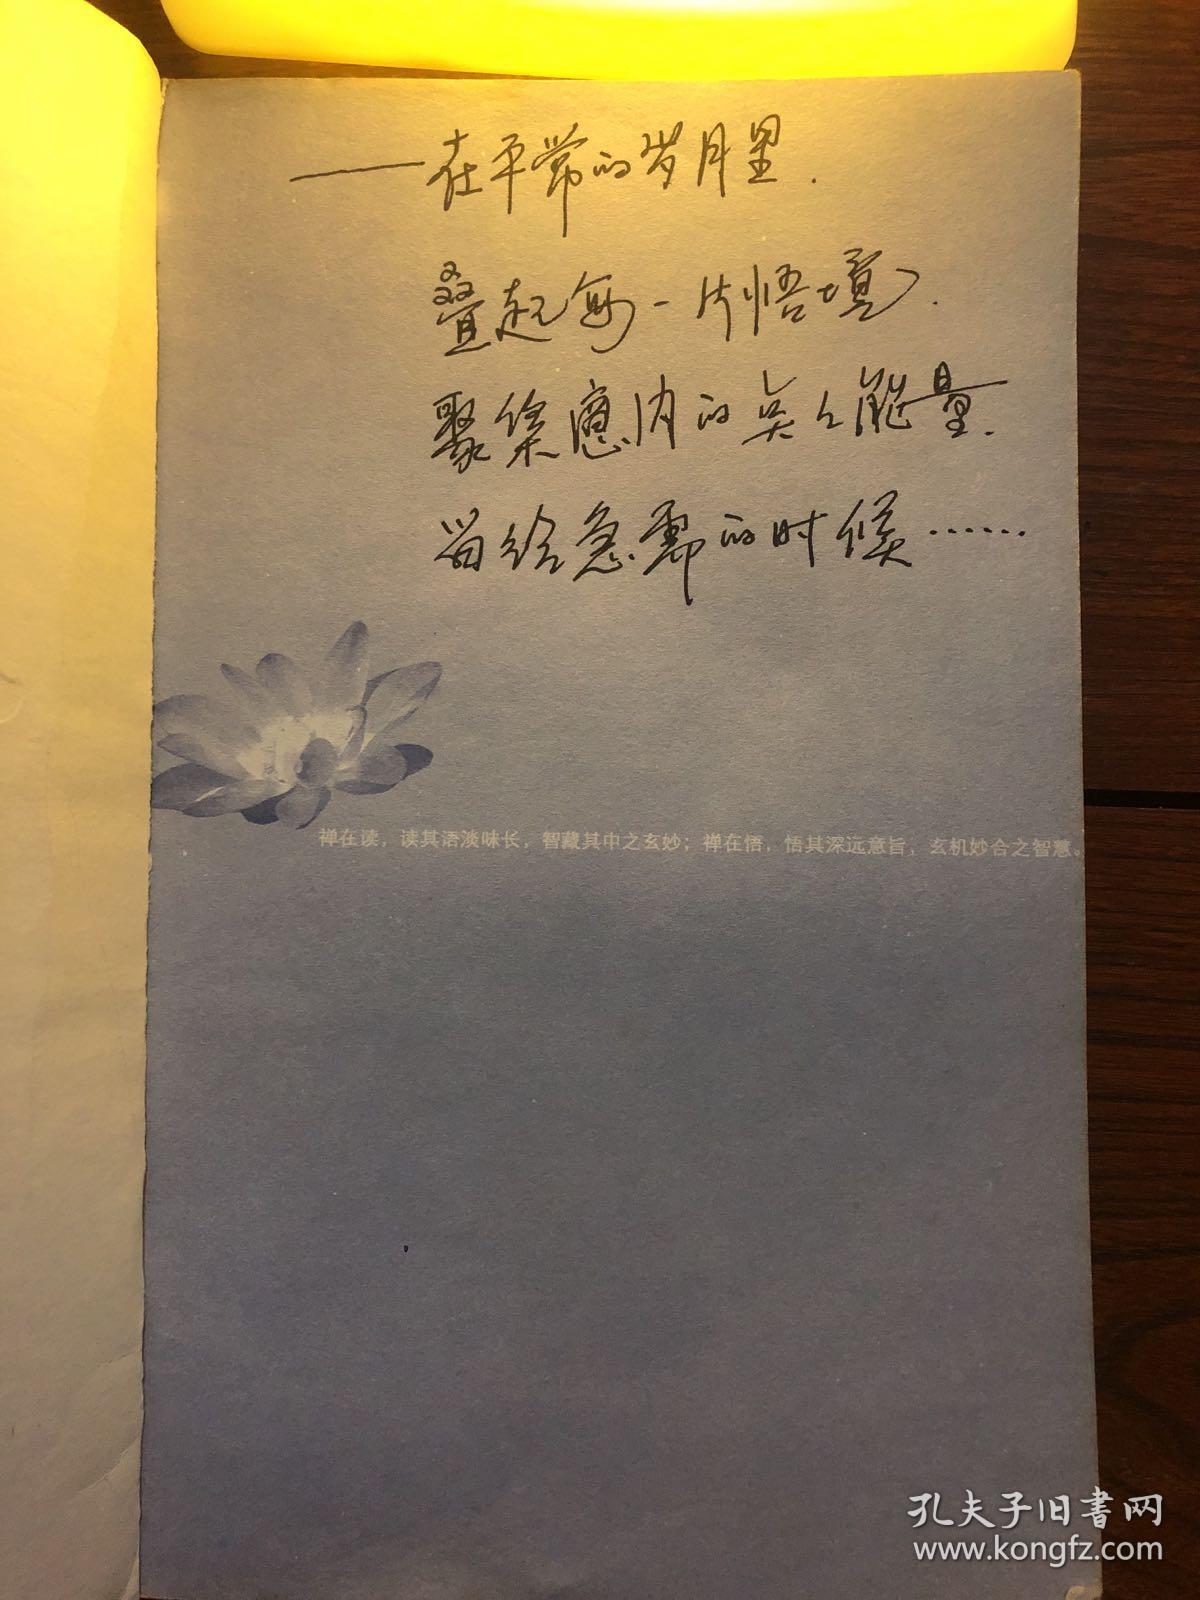 ——在平常的岁月里.
叠起每一片悟境.
聚集 内的 能量.
留给急需的时候……
禅在读，读其语淡味长，智藏其中之玄妙；禅在悟，悟其深远意旨，玄机妙合之智慧。
孔夫子旧书网
www.kongfz.com